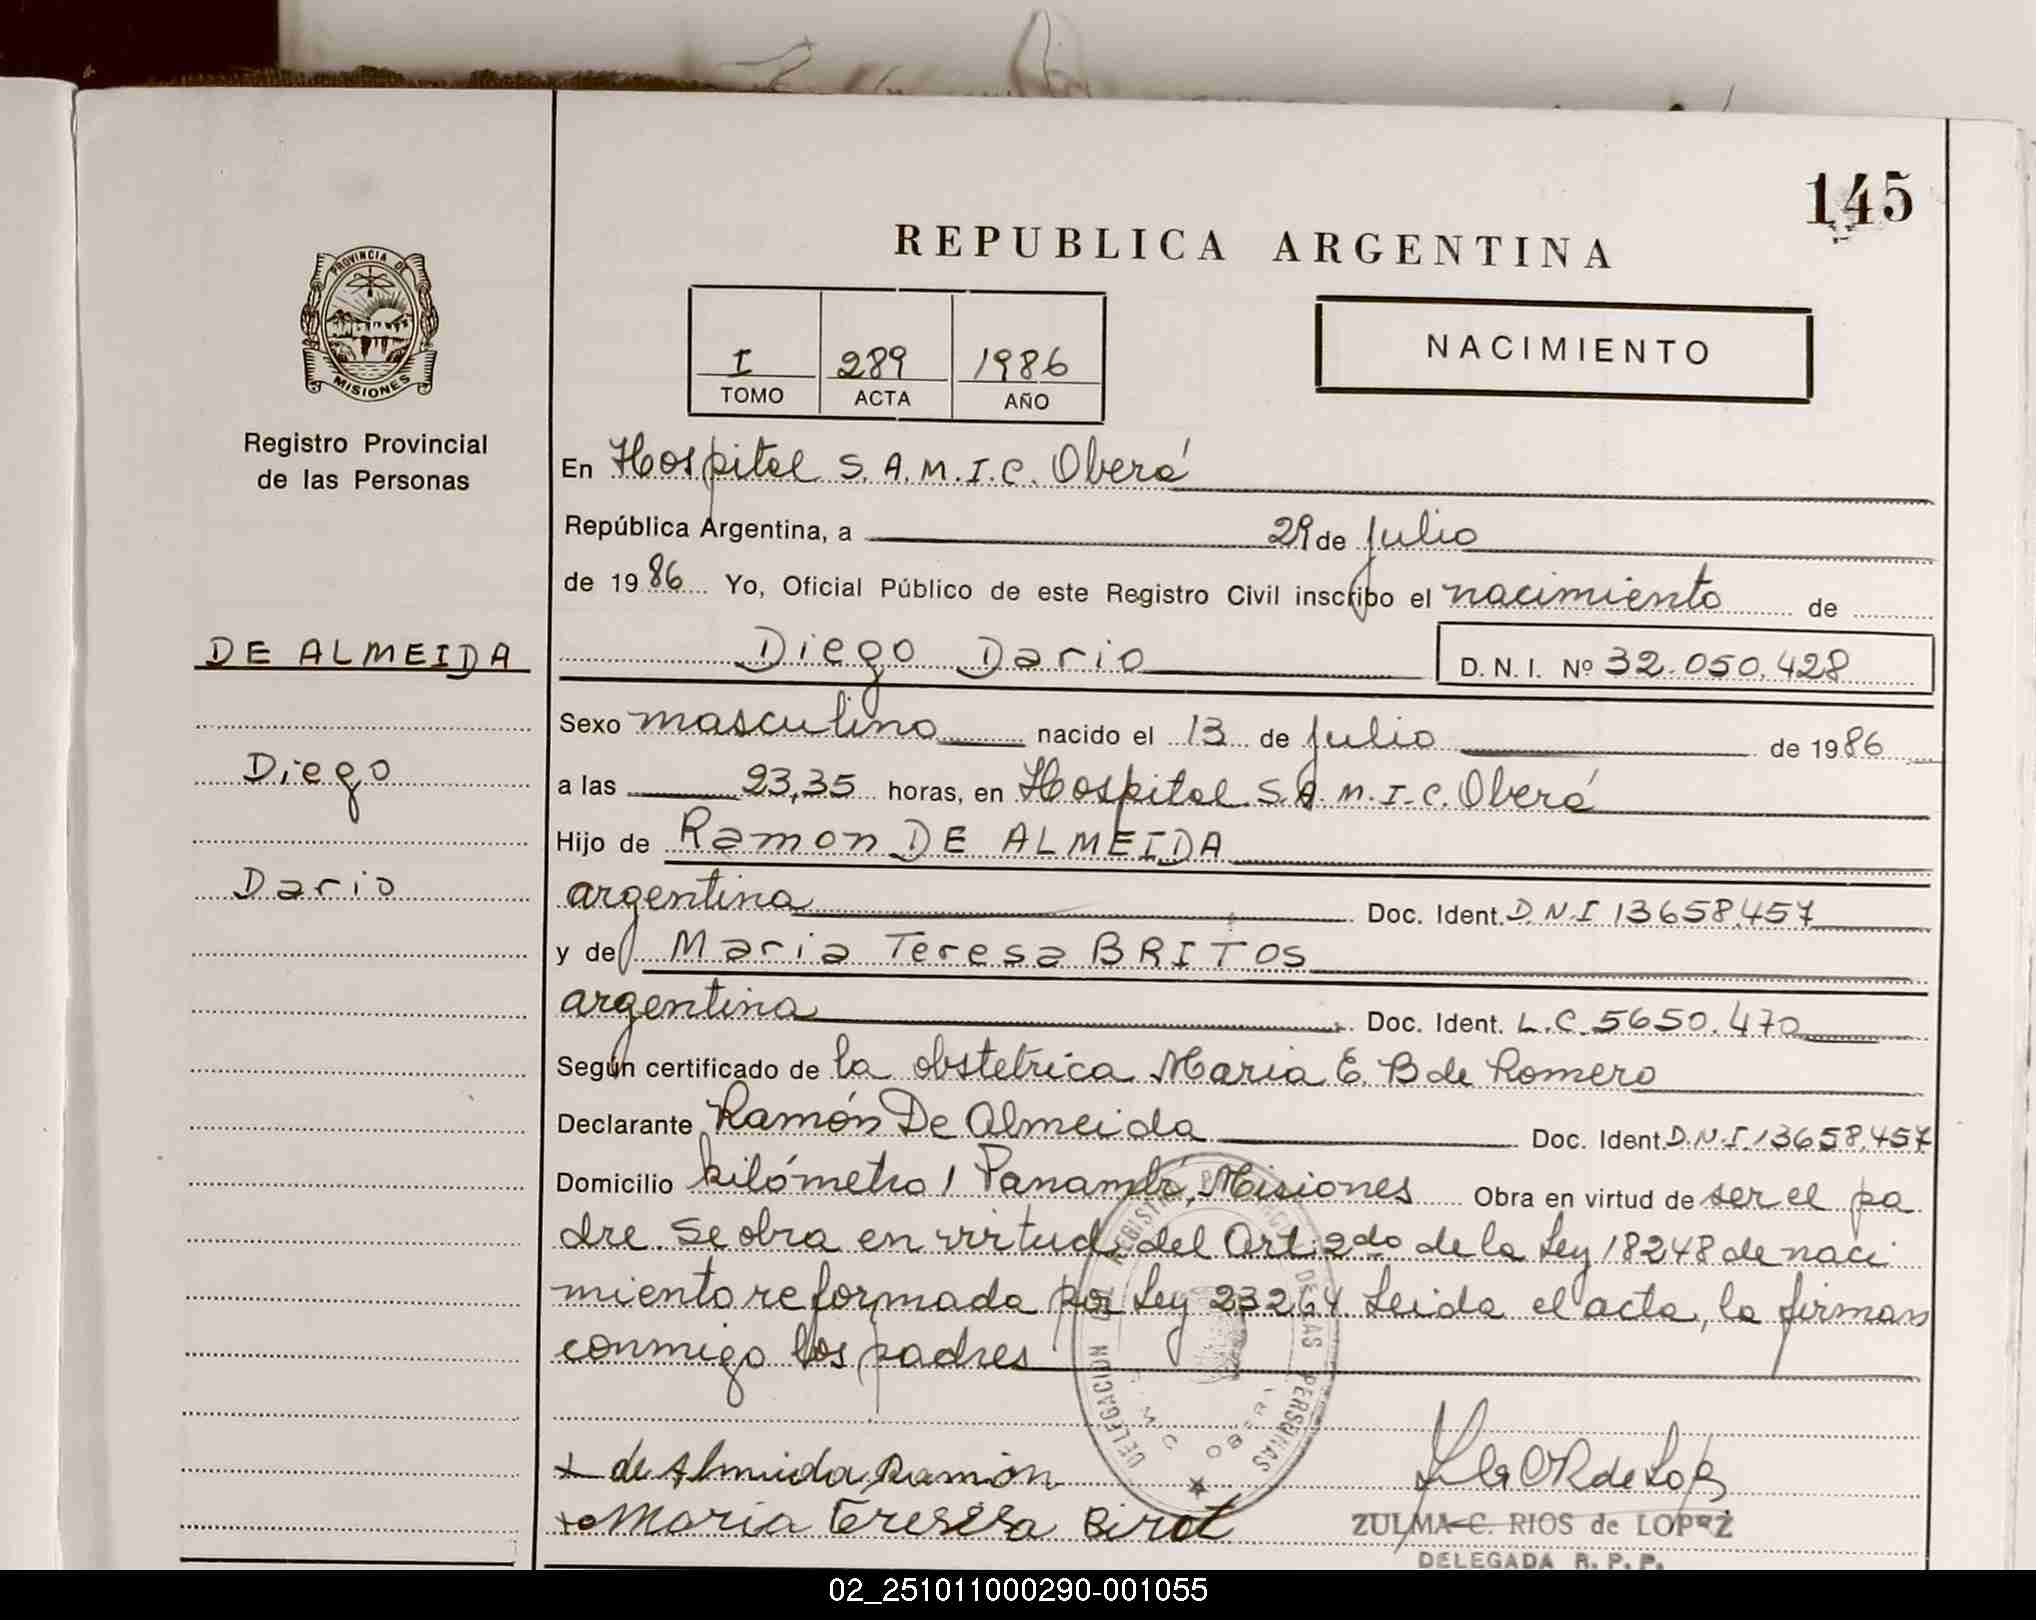 145
REPUBLICA ARGENTINA
PROVINCIA DE
MISIONES
Registro Provincial
de las Personas
I 289 1986
TOMO ACTA AÑO
NACIMIENTO
En Hospital S.A.M.I.C. Oberá
República Argentina, a 29 de julio
de 1986 Yo, Oficial Público de este Registro Civil inscribo el nacimiento de
DE ALMEIDA
Diego Dario D.N.I. Nº 32.050.428
Sexo masculino nacido el 13 de julio de 1986
Diego
a las 23,35 horas, en Hospital S.A.M.I.C. Oberá
Hijo de Ramon DE ALMEIDA
Dario
argentina Doc. Ident. D.N.I 13658.457
y de Maria Teresa BRITOS
argentina Doc. Ident. L.C. 5650.470
Según certificado de la obstetrica Maria E. B de Romero
Declarante Ramón De Almeida Doc. Ident. D.N.I. 13658.457
Domicilio kilómetro 1 Panambí, Misiones Obra en virtud de ser el pa
dre. Se obra en virtud del Art. 2do de la Ley 18248 de naci
miento reformada por Ley 23264 Leida el acta, la firman
conmigo los padres
DELEGACION REGISTRO DE LAS PERSONAS
de Almeida Ramón
Maria
ZULMA C. RIOS de LOPEZ
DELEGADA R.P.P.
02_251011000290-001055